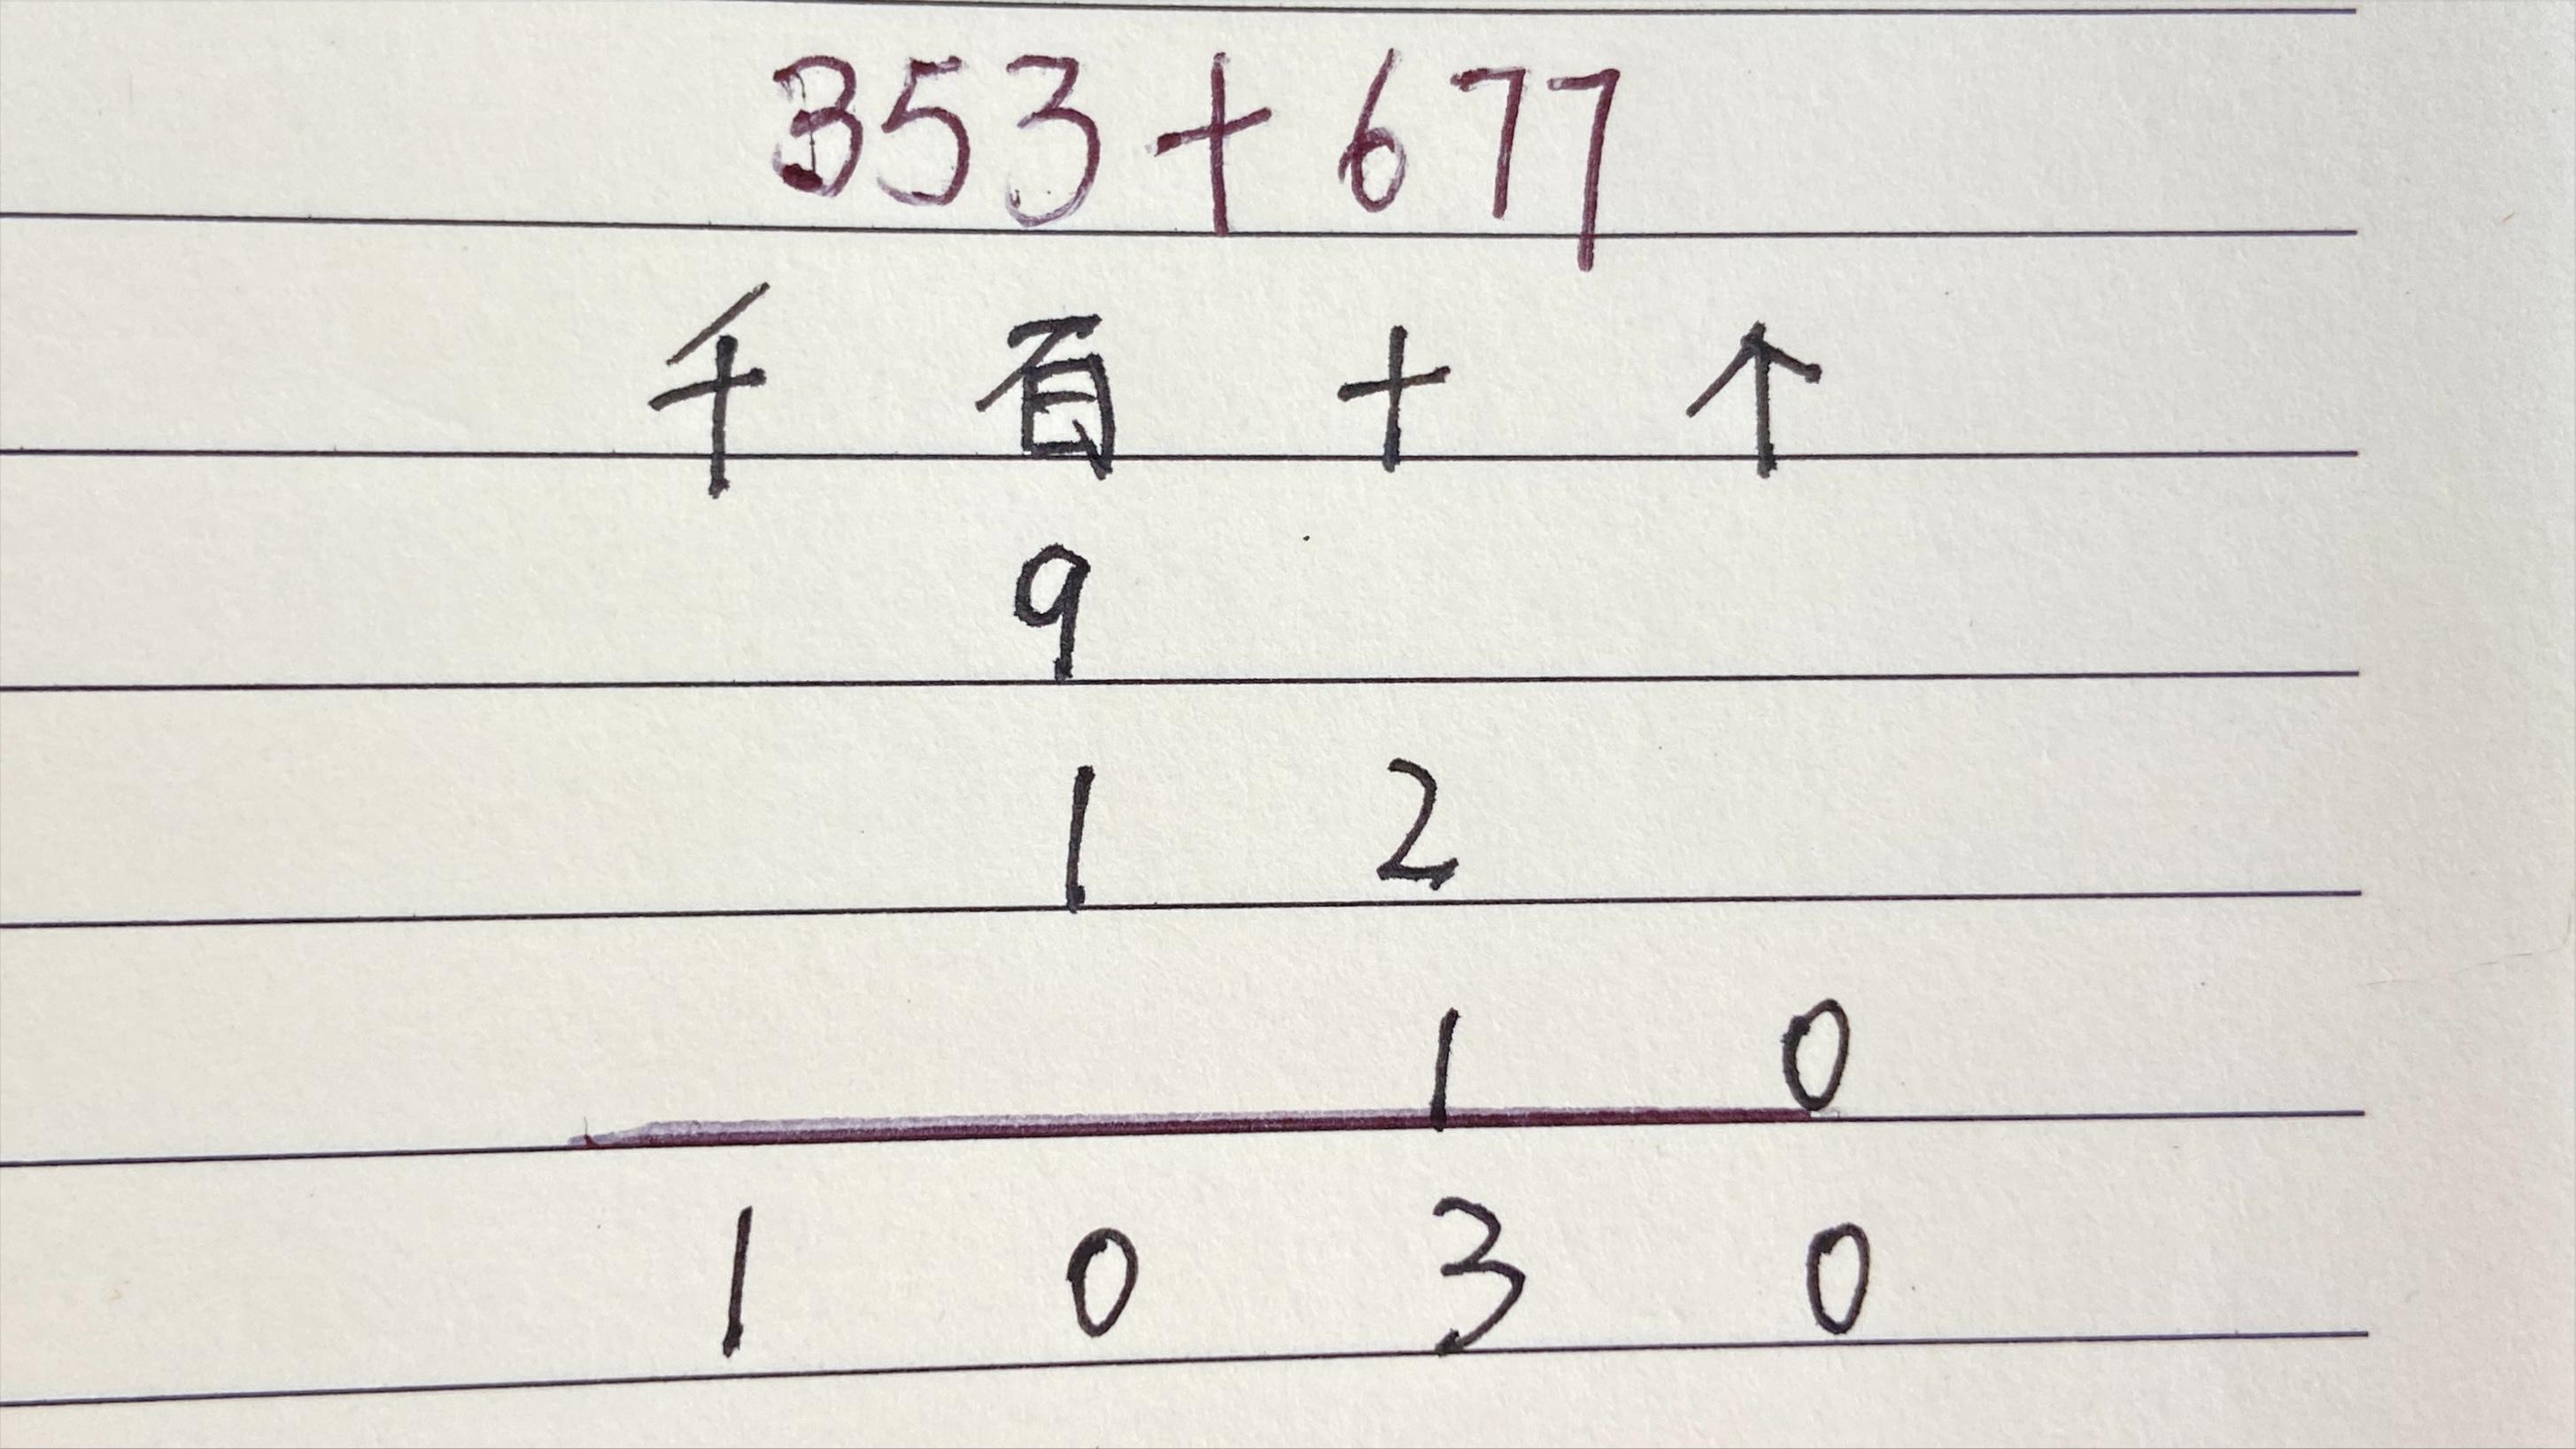 353+677
千 百 十 个
9
1 2
1 0
1 0 3 0